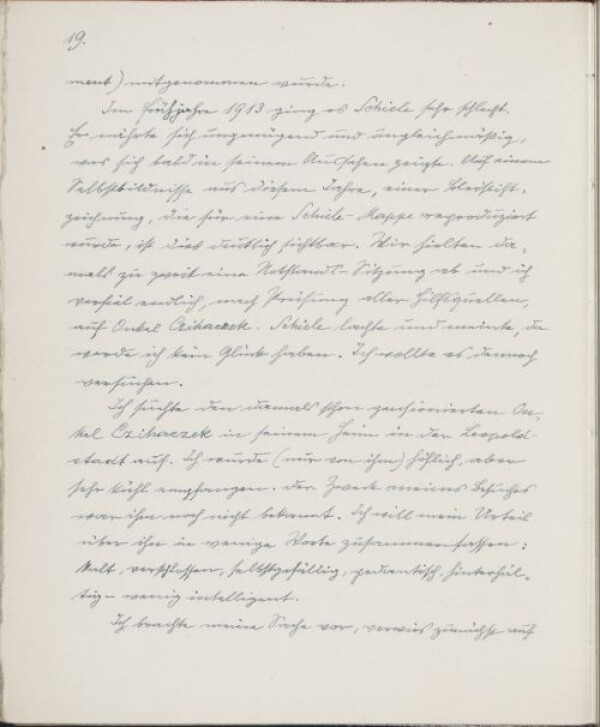 19.
ment) mitgenommen wurde.
Im Frühjahre 1913 ging es Schiele sehr schlecht.
Er nährte sich ungenügend und ungleichmäßig,
was sich bald in seinem Aussehen zeigte. Auf einem
Selbstbildnisse aus diesem Jahre, einer Bleistift-
zeichnung, die für eine Schiele-Mappe reproduziert
wurde, ist dies deutlich sichtbar. Wir hielten da-
mals zu zweit eine Notstands-Sitzung ab und ich
verfiel endlich, nach Prüfung aller Hilfsquellen,
auf Onkel Czihaczek. Schiele lachte und meinte, da
werde ich kein Glück haben. Ich wollte es dennoch
versuchen.
Ich suchte den damals schon pensionierten On-
kel Czihaczek in seinem Heim in der Leopold-
stadt auf. Ich wurde (nur von ihm) höflich, aber
sehr kühl empfangen. Der Zweck meines Besuches
war ihm noch nicht bekannt. Ich will mein Urteil
über ihn in wenige Worte zusammenfassen:
kalt, verschlossen, selbstgefällig, pedantisch, hinterhäl-
tig - wenig intelligent.
Ich brachte meine Sache vor, verwies zunächst auf